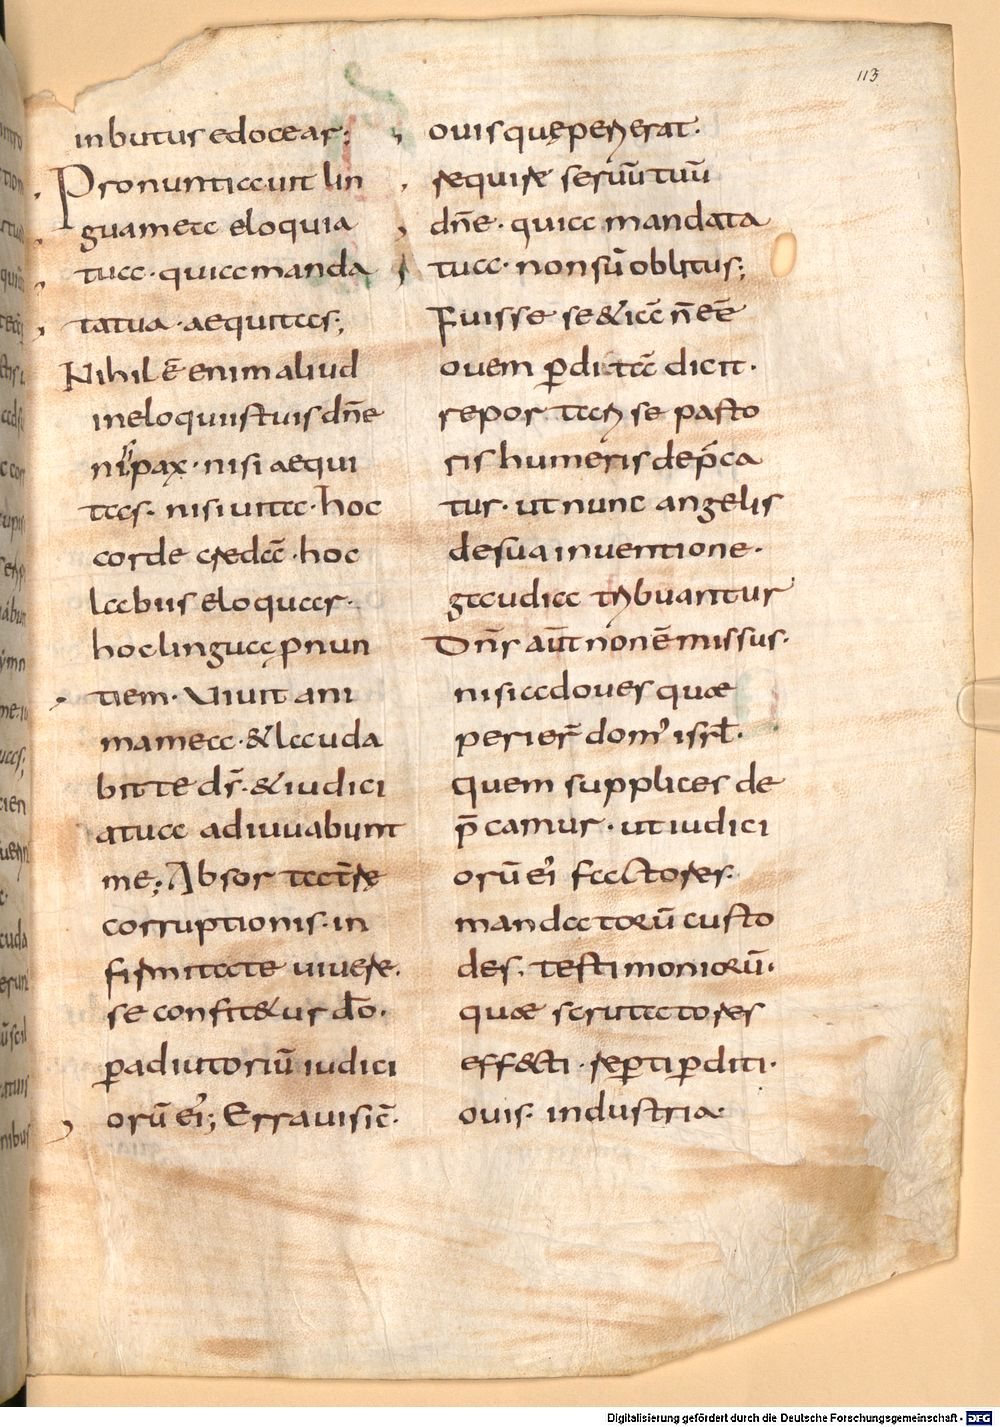 113
inbutus edoceas;
Pronuntiauit lin
gua mea eloquia
tua · quia manda
ta tua · aequitas;
Nihil ē enim aliud
in eloquiis tuis dn̄e
pax · nisi aequi
tas · nisi uita · hoc
corde credā · hoc
labiis eloquar ·
hoc lingua ꝓnun
tiem · Uiuit ani
ma mea · & lauda
bit te ds̄ · & iudici
a tua adiuuabunt
me; Absortā rę
corruptionis · in
firmitate uiuere ·
se confit&ur dō ·
ꝑ adiutoriū iudici
orū ei'; Erraui sic̄ ·
ouis quę perierat ·
require seruū tuū
dn̄e · quia mandata
tua · non sū oblitus;
Fuisse se & iā n̄ eē
ouem ꝑditā dicit ·
reportari se pasto
ris humeris dep̄ca
tur · ut nunc angelis
de sua inuentione ·
gaudia tribuantur
Dn̄s aūt non ē missus ·
nisi ad oues quæ
perier̄ dom' isrl̄ ·
quem supplices de
p̄camur · ut iudici
orū ei' factores ·
mandatorū custo
des · testimoniorū ·
quæ scrutatores
eff&ti · reꝑti ꝑditi ·
ouis · industria ·
Digitalisierung gefördert durch die Deutsche Forschungsgemeinschaft - DFG